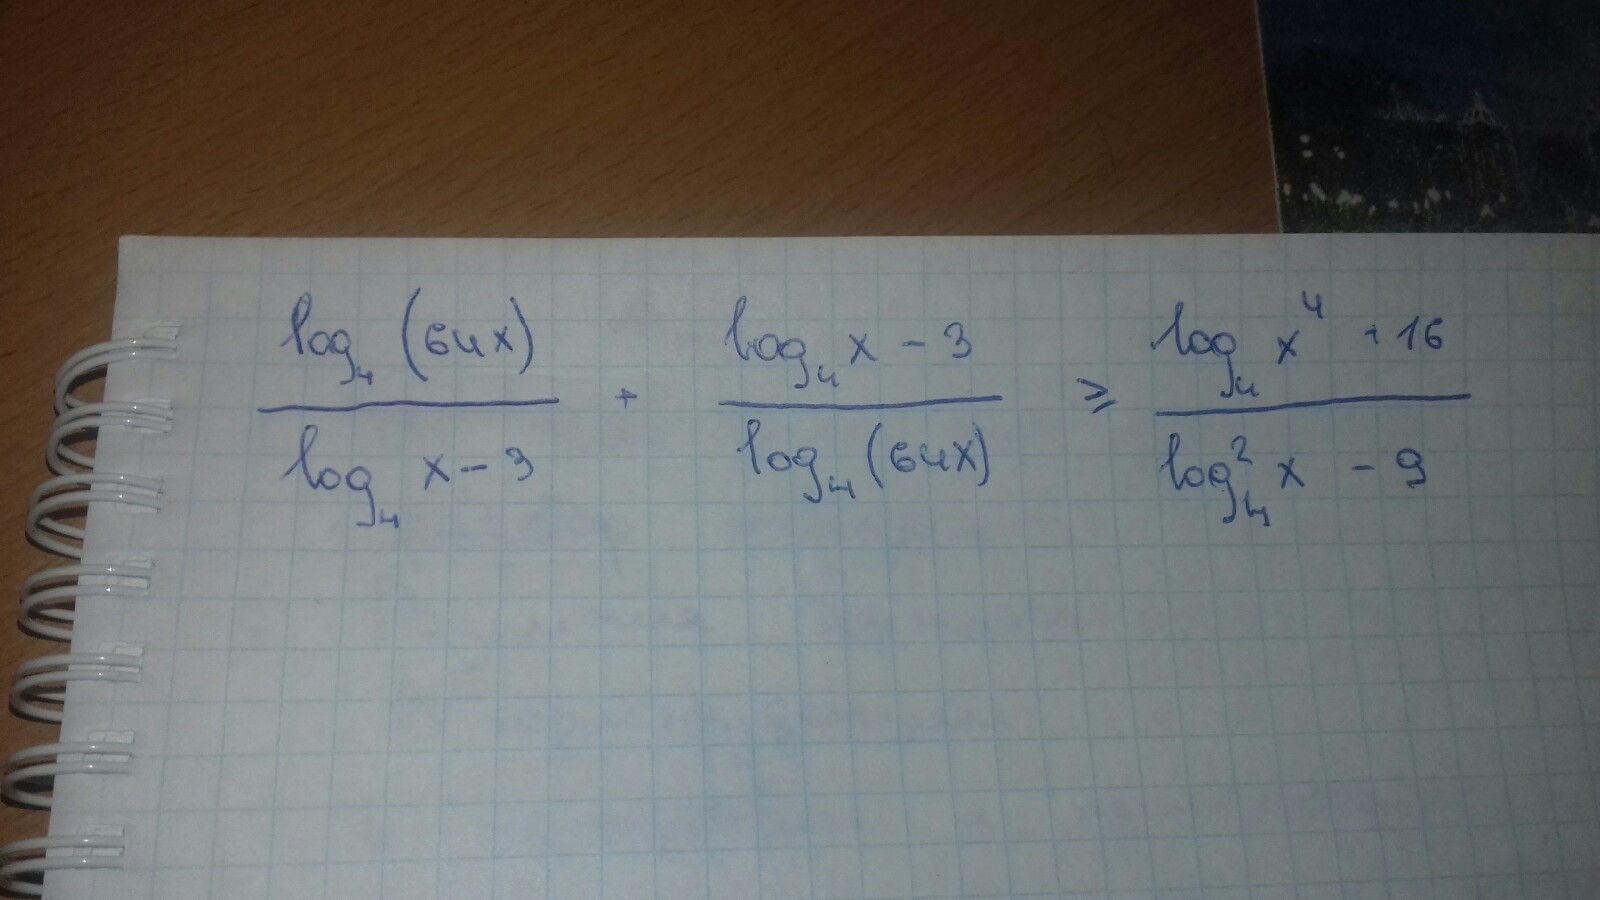 log₄ (64x) / log₄ x - 3 + log₄ x - 3 / log₄ (64x) ⩾ log₄ x⁴ + 16 / log₄² x - 9